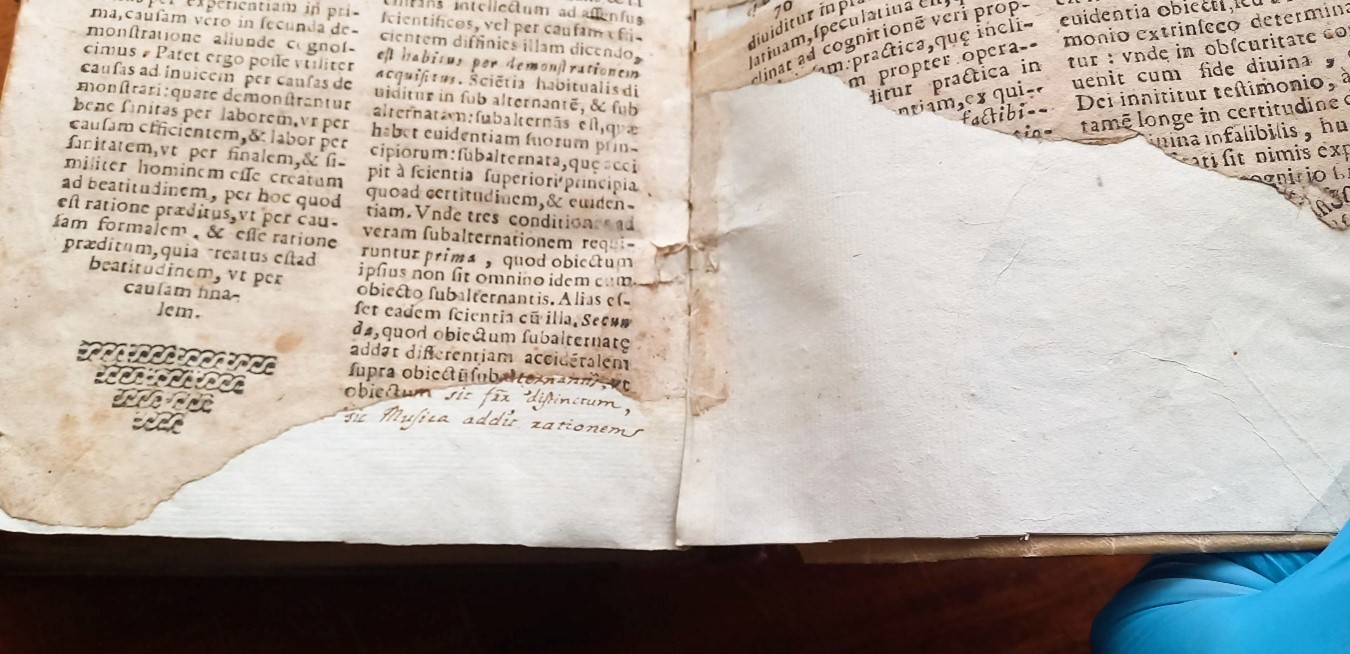 per experientiam in pri-
ma, causam vero in secunda de-
monstratione aliunde cognos-
cimus. Patet ergo posse vtiliter
causas ad inuicem per causas de
monstrari: quare demonstrantur
bene sanitas per laborem, vt per
causam efficientem, & labor per
sanitatem, vt per finalem, & si-
militer hominem esse creatum
ad beatitudinem, per hoc quod
est ratione præditus, vt per cau-
sam formalem, & esse ratione
præditum, quia creatus est ad
beatitudinem, vt per
causam fina-
lem.
intellectum ad assensus
scientificos, vel per causam effi-
cientem diffinies illam dicendo,
est habitus per demonstrationem
acquisitus. Sciẽtia habitualis di
uiditur in sub alternantẽ, & sub
alternatam: subalternãs est, quæ
habet euidentiam suorum prin-
cipiorum: subalternata, quę acci
pit à scientia superiori principia
quoad certitudinem, & euiden-
tiam. Vnde tres conditiones ad
veram subalternationem requi-
runtur prima, quod obiectum
ipsius non sit omnino idem cum
obiecto subalternantis. Alias es-
set eadem scientia cũ illa. Secun
da, quod obiectum subalternatę
addat differentiam accidẽtalem
supra obiectũ subalternantis, vt
obiectum sic distinctum,
sic Musica addit rationem
70
diuiditur in
latiuam, speculatiua
clinat ad cognitionẽ veri prop-
practica, quę incli-
m propter opera-
ditur practica in
ntiam, ex qui-
factibi-
tio-
euidentia obiecti, seu
monio extrinseco determina
tur: vnde in obscuritate con
uenit cum fide diuina,
Dei innititur testimonio, à
tamẽ longe in certitudine
inina infalibilis, hu
ati sit nimis exp
ognitio